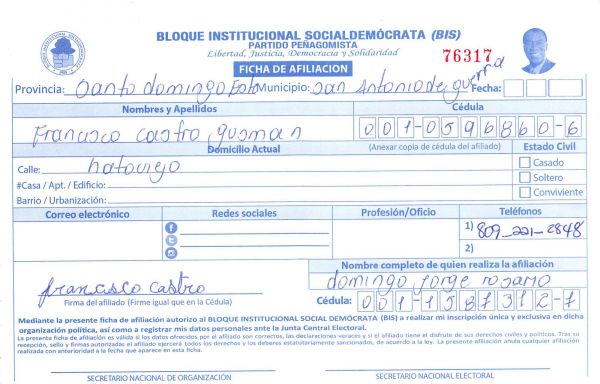 BLOQUE INSTITUCIONAL SOCIALDEMÓCRATA (BIS)
PARTIDO PEÑAGOMISTA
Libertad, Justicia, Democracia y Solidaridad
76317
FICHA DE AFILIACION
Provincia: Santo domingo Este Municipio: San Antonio de guerra Fecha:
Nombres y Apellidos Cédula
Francisco castro gusman 001-0596860-6
Domicilio Actual (Anexar copia de cédula del afiliado) Estado Civil
Calle: hatoviejo Casado
#Casa / Apt. / Edificio: Soltero
Barrio / Urbanización: Conviviente
Correo electrónico Redes sociales Profesión/Oficio Teléfonos
1) 809-221-2848
2)
Nombre completo de quien realiza la afiliación
francisco castro domingo jorge rosario
Firma del afiliado (Firme igual que en la Cédula) Cédula: 001-1587312-7
Mediante la presente ficha de afiliación autorizo al BLOQUE INSTITUCIONAL SOCIAL DEMÓCRATA (BIS) a realizar mi inscripción única y exclusiva en dicha
organización política, así como a registrar mis datos personales ante la Junta Central Electoral.
La presente ficha de afiliación es válida si los datos ofrecidos por el afiliado son correctos, las declaraciones veraces y si el afiliado tiene el disfrute de sus derechos civiles y políticos. Tras su
recepción, sello y firmas autorizadas el afiliado ejercerá todos los derechos y los deberes estatutariamente sancionados, de acuerdo a la ley. La presente afiliación anula cualquier afiliación
realizada con anterioridad a la fecha que aparece en esta ficha.
SECRETARIO NACIONAL DE ORGANIZACIÓN SECRETARIO NACIONAL ELECTORAL